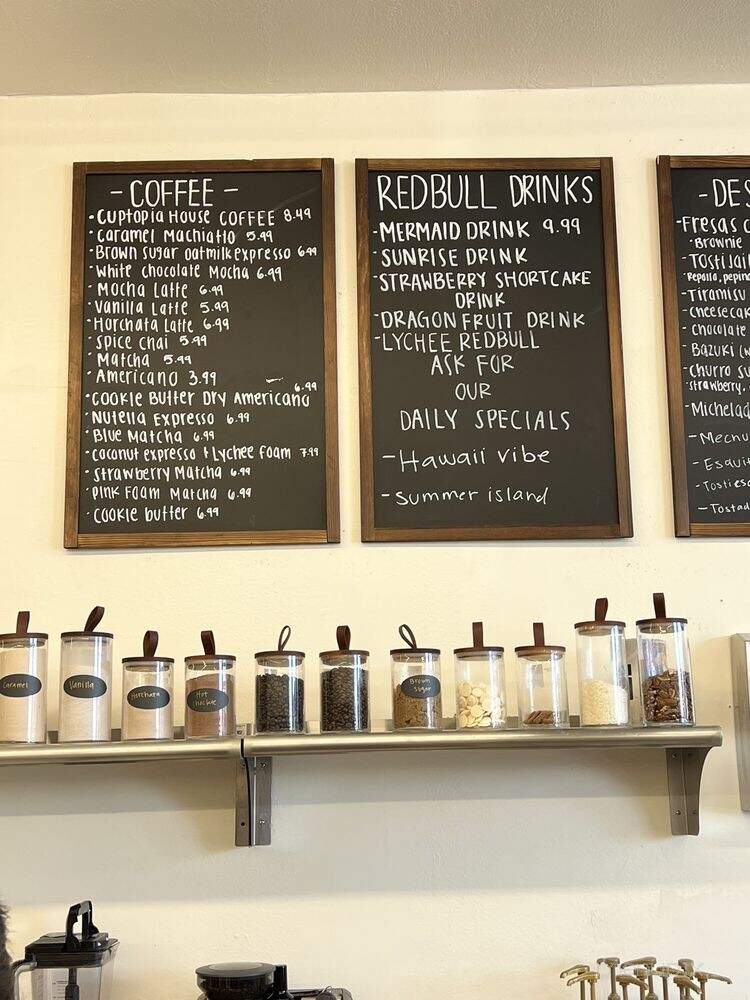 - COFFEE -
• Cuptopia House COFFEE 8.49
• Caramel Machiatto 5.99
• Brown sugar oatmilk expresso 6.99
• White chocolate Mocha 6.99
• Mocha Latte 6.99
• Vanilla Latte 5.99
• Horchata Latte 6.99
• Spice chai 5.99
• Matcha 5.99
• Americano 3.99
• Cookie Butter Dry Americano 6.99
• Nutella Expresso 6.99
• Blue Matcha 6.99
• coconut expresso + Lychee Foam 7.99
• Strawberry Matcha 6.99
• Pink Foam Matcha 6.99
• Cookie butter 6.99
REDBULL DRINKS
-MERMAID DRINK 9.99
-SUNRISE DRINK
-STRAWBERRY SHORTCAKE
DRINK
-DRAGON FRUIT DRINK
-LYCHEE REDBULL
ASK FOR
OUR
DAILY SPECIALS
-Hawaii vibe
-Summer island
-DES
-Fresas c
•Brownie
-Tostilai
•Repollo, pepin
-Tiramisu
•cheesecak
•chocolate
•Bazuki (w
-churro su
strawberry,
-Michelad
-Mechu
-Esquit
-Tosties
-Tostad
Caramel
Vanilla
Horchata
Hot
Brown
Sugar